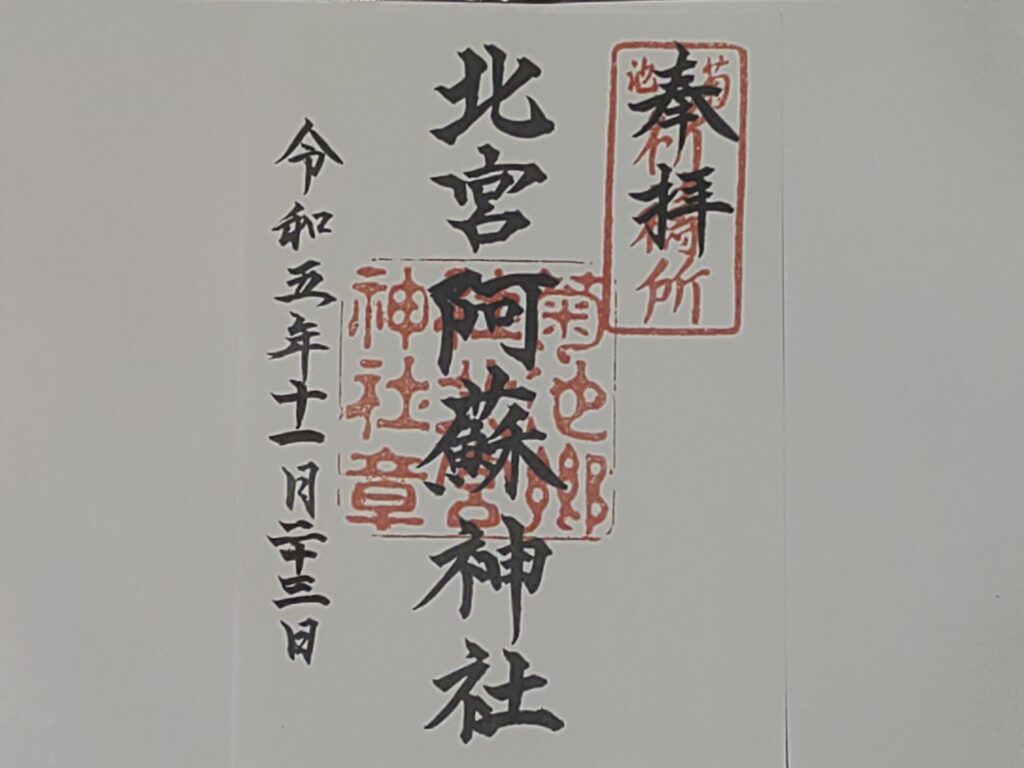 奉拝
菊池
祈祷所
北宮阿蘇神社
菊池郷
阿蘇宮
神社章
令和五年十一月二十三日